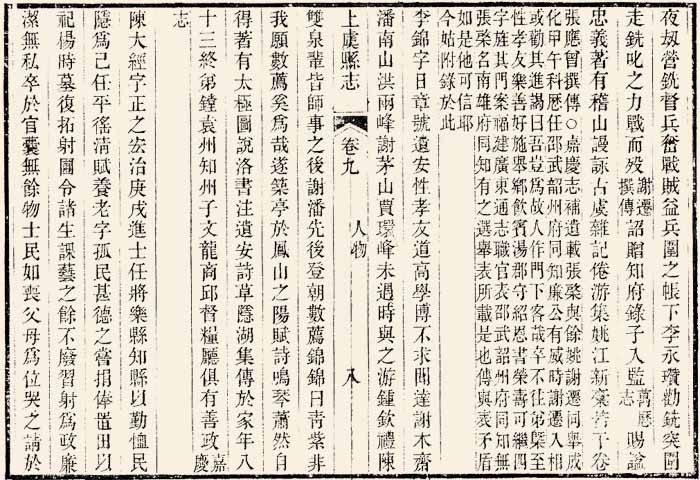 夜刼營銑督兵奮戰賊益兵圍之帳下李永瓚勸銑突圍
走銑叱之力戰而歿謝遷撰傳詔贈知府錄子入監萬歷志賜諡
忠義著有稽山謾詠古虞雜記倦游集姚江新藁若干卷
張應曾撰傳○嘉慶志補遺載張槩與餘姚謝遷同舉成
化甲午科歷任邵武韶州府同知廉公有威時謝遷入相
或勸其進謁曰吾豈爲故人作門下客哉卒不往弟槩至
性孝友樂善好施舉鄉飲賓湯郡守紹恩書榮壽可繼四
字旌其門案福建廣東通志職官表邵武韶州府同知無
張槩名南雄府同知有之選舉表所載是也傳與表矛盾
如是他可信耶
今姑附錄於此
李錦字日章號遺安性孝友道高學博不求聞達謝木齋
潘南山洪兩峰謝茅山賈環峰未遇時與之游鍾欽禮陳
上虞縣志
卷九
人物
八
雙泉輩皆師事之後謝潘先後登朝數薦錦錦曰靑紫非
我願數薦奚爲哉遂築亭於鳳山之陽賦詩鳴琴蕭然自
得著有太極圖說洛書注遺安詩草隱湖集傳於家年八
十三終弟鏜袁州知州子文龍商邱督糧廳俱有善政嘉慶
志
陳大經字正之宏治庚戌進士任將樂縣知縣以勤恤民
隱爲己任平徭淸賦養老字孤民甚德之嘗捐俸置田以
祀楊時墓復拓射圃令諸生課藝之餘不廢習射爲政廉
潔無私卒於官囊無餘物士民如喪父母爲位哭之請於